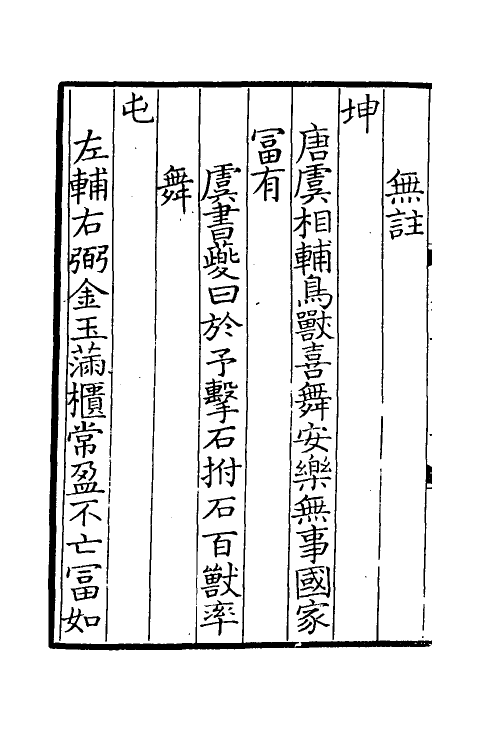 無註
坤
唐虞相輔鳥獸喜舞安樂無事國家
冨有
虞書夔曰於予擊石拊石百獸率
舞
屯
左輔右弼金玉滿櫃常盈不亡冨如